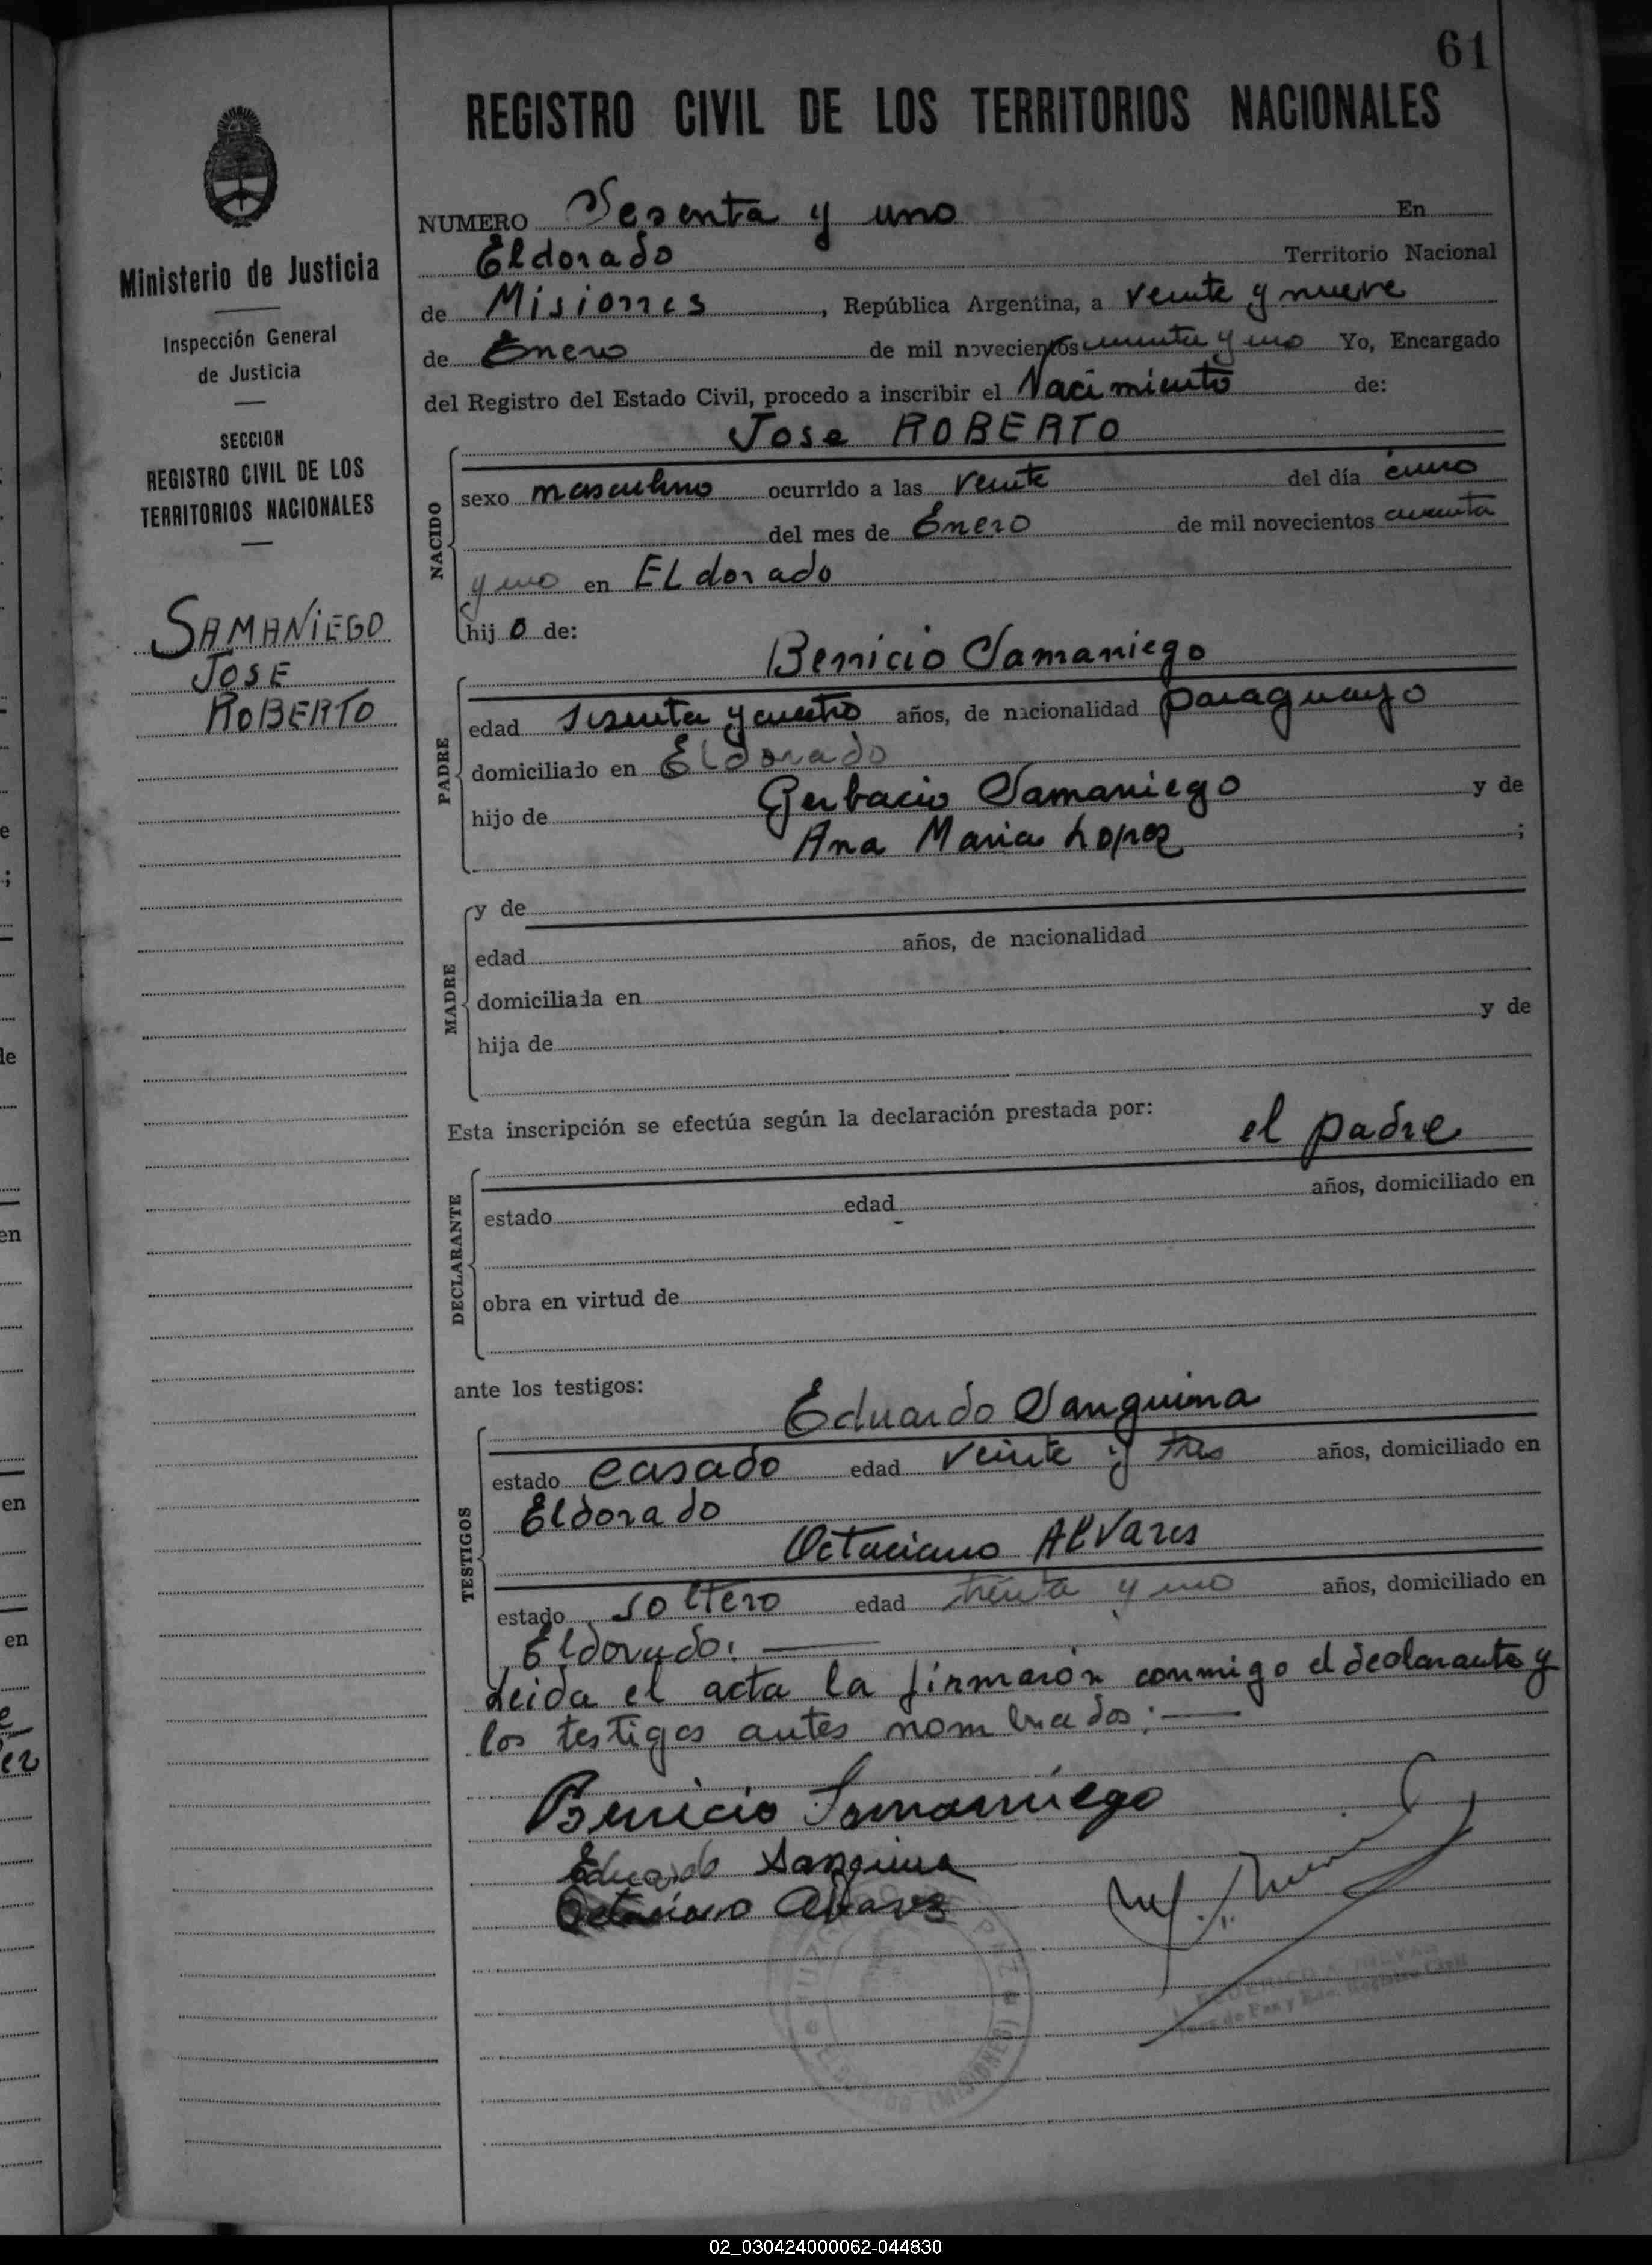 61
REGISTRO CIVIL DE LOS TERRITORIOS NACIONALES
Ministerio de Justicia
Inspección General
de Justicia
SECCION
REGISTRO CIVIL DE LOS
TERRITORIOS NACIONALES
SAMANIEGO
JOSE
ROBERTO
NUMERO Sesenta y uno En
Eldorado Territorio Nacional
de Misiones, República Argentina, a veinte y nueve
de Enero de mil novecientos cincuenta y uno Yo, Encargado
del Registro del Estado Civil, procedo a inscribir el Nacimiento de:
Jose ROBERTO
NACIDO
sexo masculino ocurrido a las veinte del día cinco
del mes de Enero de mil novecientos cincuenta
y uno en ELdorado
hijo de:
Benicio Samaniego
PADRE
edad sesenta y cuatro años, de nacionalidad paraguayo
domiciliado en Eldorado
hijo de Gerbacio Samaniego y de
Ana Maria Lopez ;
MADRE
y de
edad años, de nacionalidad
domiciliada en
hija de y de
Esta inscripción se efectúa según la declaración prestada por:
el padre
DECLARANTE
estado edad años, domiciliado en
obra en virtud de
ante los testigos:
Eduardo Sanguina
TESTIGOS
estado casado edad veinte y tres años, domiciliado en
Eldorado
Octaciano Alvares
estado soltero edad treinta y uno años, domiciliado en
Eldorado:
Leida el acta la firmaron conmigo el declarante y
los testigos antes nombrados:
Benicio Samaniego
Eduardo Sanguina
Octaciano Alvarez
(MISIONES)
02_030424000062-044830